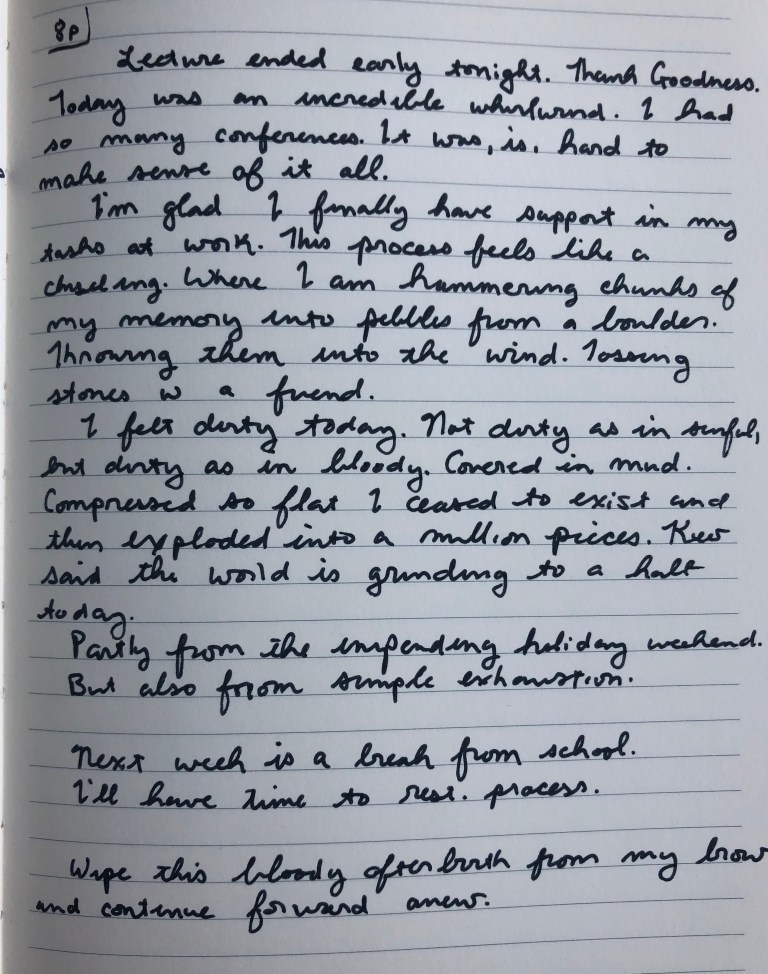 8P
Lecture ended early tonight. Thank Goodness.
Today was an incredible whirlwind. I had
so many conferences. It was, is, hard to
make sense of it all.
I'm glad I finally have support in my
tasks at work. This process feels like a
chiseling. Where I am hammering chunks of
my memory into pebbles from a boulder.
Throwing them into the wind. Tossing
stones w a friend.
I felt dirty today. Not dirty as in sinful,
but dirty as in bloody. Covered in mud.
Compressed so flat I ceased to exist and
then exploded into a million pieces.
said the world is grinding to a halt
today.
Partly from the impending holiday weekend.
But also from simple exhaustion.
Next week is a break from school.
I'll have time to rest. process.
Wipe this bloody afterbirth from my brow
and continue forward anew.